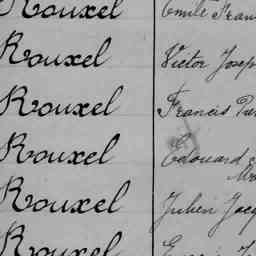 Rouxel Emile Fran
Rouxel Victor Josep
Rouxel Francis
Rouxel Edouard
Rouxel Julien Jacq
Rouxel